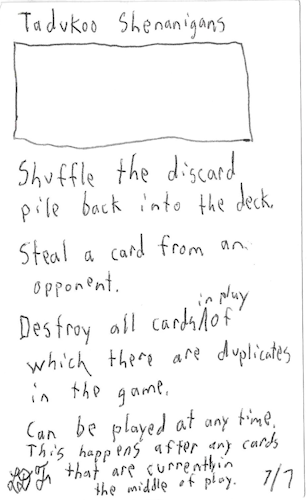 Tadukoo Shenanigans
Shuffle the discard
pile back into the deck.
Steal a card from an
opponent.
Destroy all cards in play of
which there are duplicates
in the game.
Can be played at any time.
This happens after any cards
that are currently in
the middle of play.
7/7